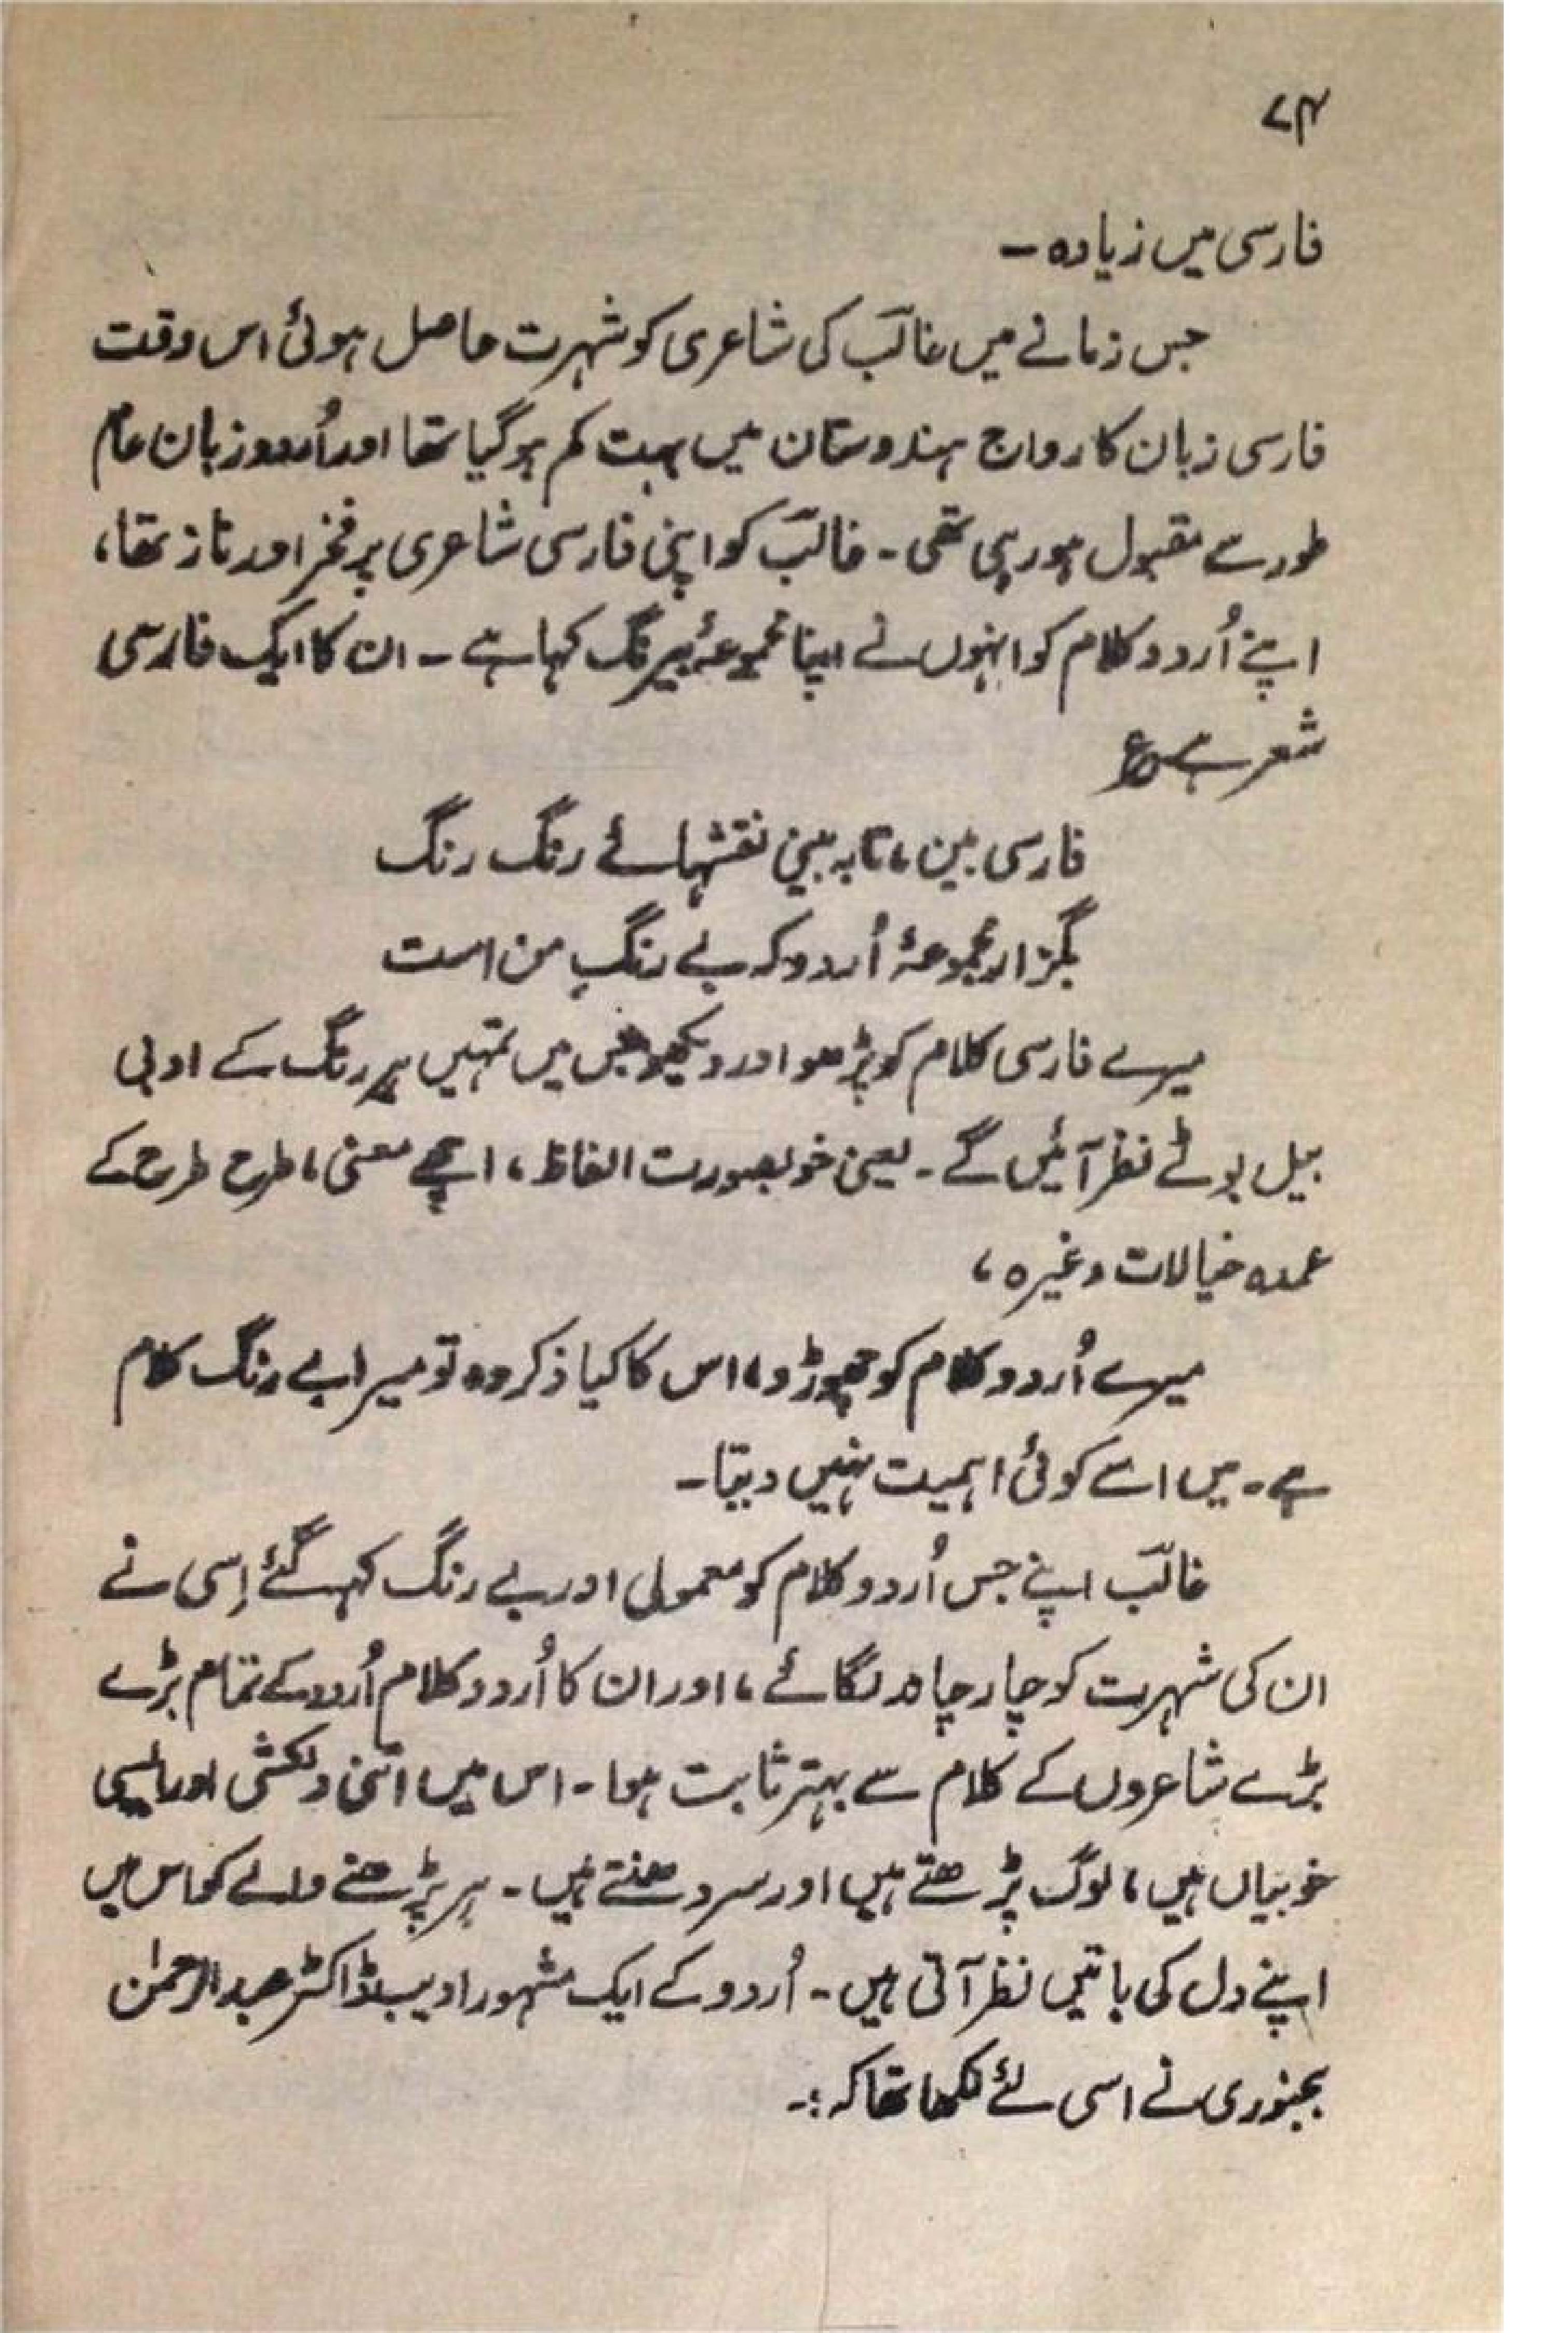 ۷۴
فارسی میں زیادہ ۔
جس زمانے میں غالبؔ کی شاعری کو شہرت حاصل ہوئی اس وقت
فارسی زبان کا رواج ہندوستان میں بہت کم ہو گیا تھا اور اُردو زبان عام
طور سے مقبول ہو رہی تھی ۔ غالبؔ کو اپنی فارسی شاعری پر فخر اور ناز تھا،
اپنے اُردو کلام کو انہوں نے اپنا مجموعۂ بیرنگ کہا ہے ۔ ان کا ایک فارسی
شعر ہے ؏
فارسی بین، تا بہ بینی نقشہائے رنگ رنگ
بگزار مجموعۂ اُردو کہ بے رنگِ من است
میرے فارسی کلام کو پڑھو اور دیکھو جس میں تمہیں ہر رنگ کے ادبی
بیل بوٹے نظر آئیں گے ۔ یعنی خوبصورت الفاظ، اچھے معنی، طرح طرح کے
عمدہ خیالات وغیرہ،
میرے اُردو کلام کو چھوڑو، اس کا کیا ذکر وہ تو میرا بے رنگ کلام
ہے ۔ میں اسے کوئی اہمیت نہیں دیتا ۔
غالبؔ اپنے جس اُردو کلام کو معمولی اور بے رنگ کہہ گئے اِسی نے
ان کی شہرت کو چار چاند لگائے، اور ان کا اُردو کلام اُردو کے تمام بڑے
بڑے شاعروں کے کلام سے بہتر ثابت ہوا ۔ اس میں اتنی دلکشی اور ایسی
خوبیاں ہیں، لوگ پڑھتے ہیں اور سر دھنتے ہیں ۔ ہر پڑھنے والے کو اس میں
اپنے دل کی باتیں نظر آتی ہیں ۔ اُردو کے ایک مشہور ادیب ڈاکٹر عبدالرحمٰن
بجنوری نے اسی لئے لکھا تھا کہ :۔